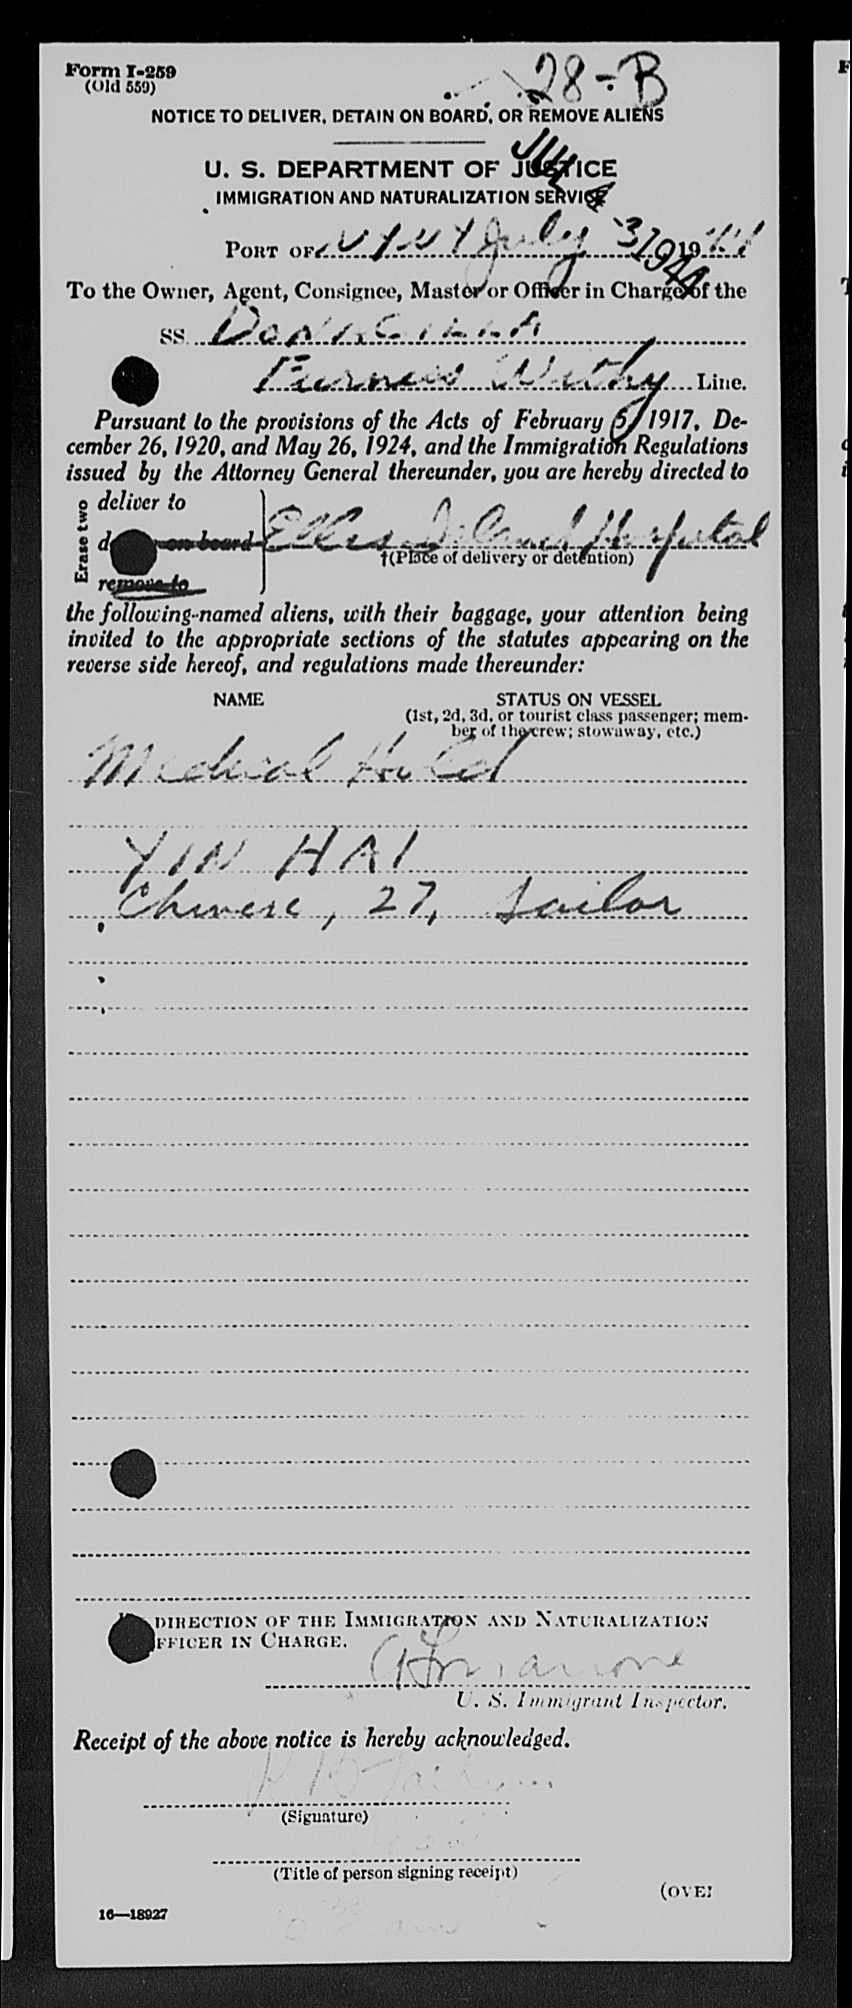 Form I-259
(Old 559)
28-B
NOTICE TO DELIVER, DETAIN ON BOARD, OR REMOVE ALIENS
U. S. DEPARTMENT OF JUSTICE
IMMIGRATION AND NATURALIZATION SERVICE
JUL 4 1944
PORT OF NYNY July 3 1944
To the Owner, Agent, Consignee, Master or Officer in Charge of the
SS. DONACILLA
Furness Withy Line.
Pursuant to the provisions of the Acts of February 5, 1917, De-
cember 26, 1920, and May 26, 1924, and the Immigration Regulations
issued by the Attorney General thereunder, you are hereby directed to
Erase two
deliver to
on board
remove to
Ellis Island Hospital
†(Place of delivery or detention)
the following-named aliens, with their baggage, your attention being
invited to the appropriate sections of the statutes appearing on the
reverse side hereof, and regulations made thereunder:
NAME STATUS ON VESSEL
(1st, 2d, 3d, or tourist class passenger; mem-
ber of the crew; stowaway, etc.)
Medical Hold
YIN HAI
Chinese, 27, Sailor
DIRECTION OF THE IMMIGRATION AND NATURALIZATION
FFICER IN CHARGE.
U. S. Immigrant Inspector.
Receipt of the above notice is hereby acknowledged.
(Signature)
(Title of person signing receipt)
(OVE
16—18927